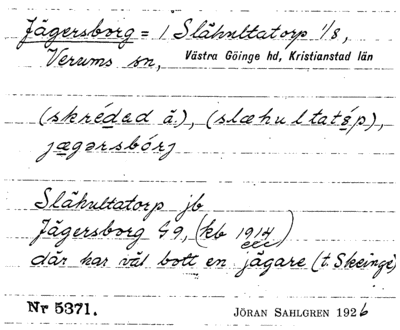 Jägersborg = 1 Slähultatorp 1/8,
Verums sn, Västra Göinge hd, Kristianstad län
(skrédad ä.), (slæhultatårp),
jægərsbórj
Slähultatorp jb
Jägersborg G9, (kb 1914)
där har väl bott en jägare (t. Skeinge)
Nr 5371. JÖRAN SAHLGREN 1926